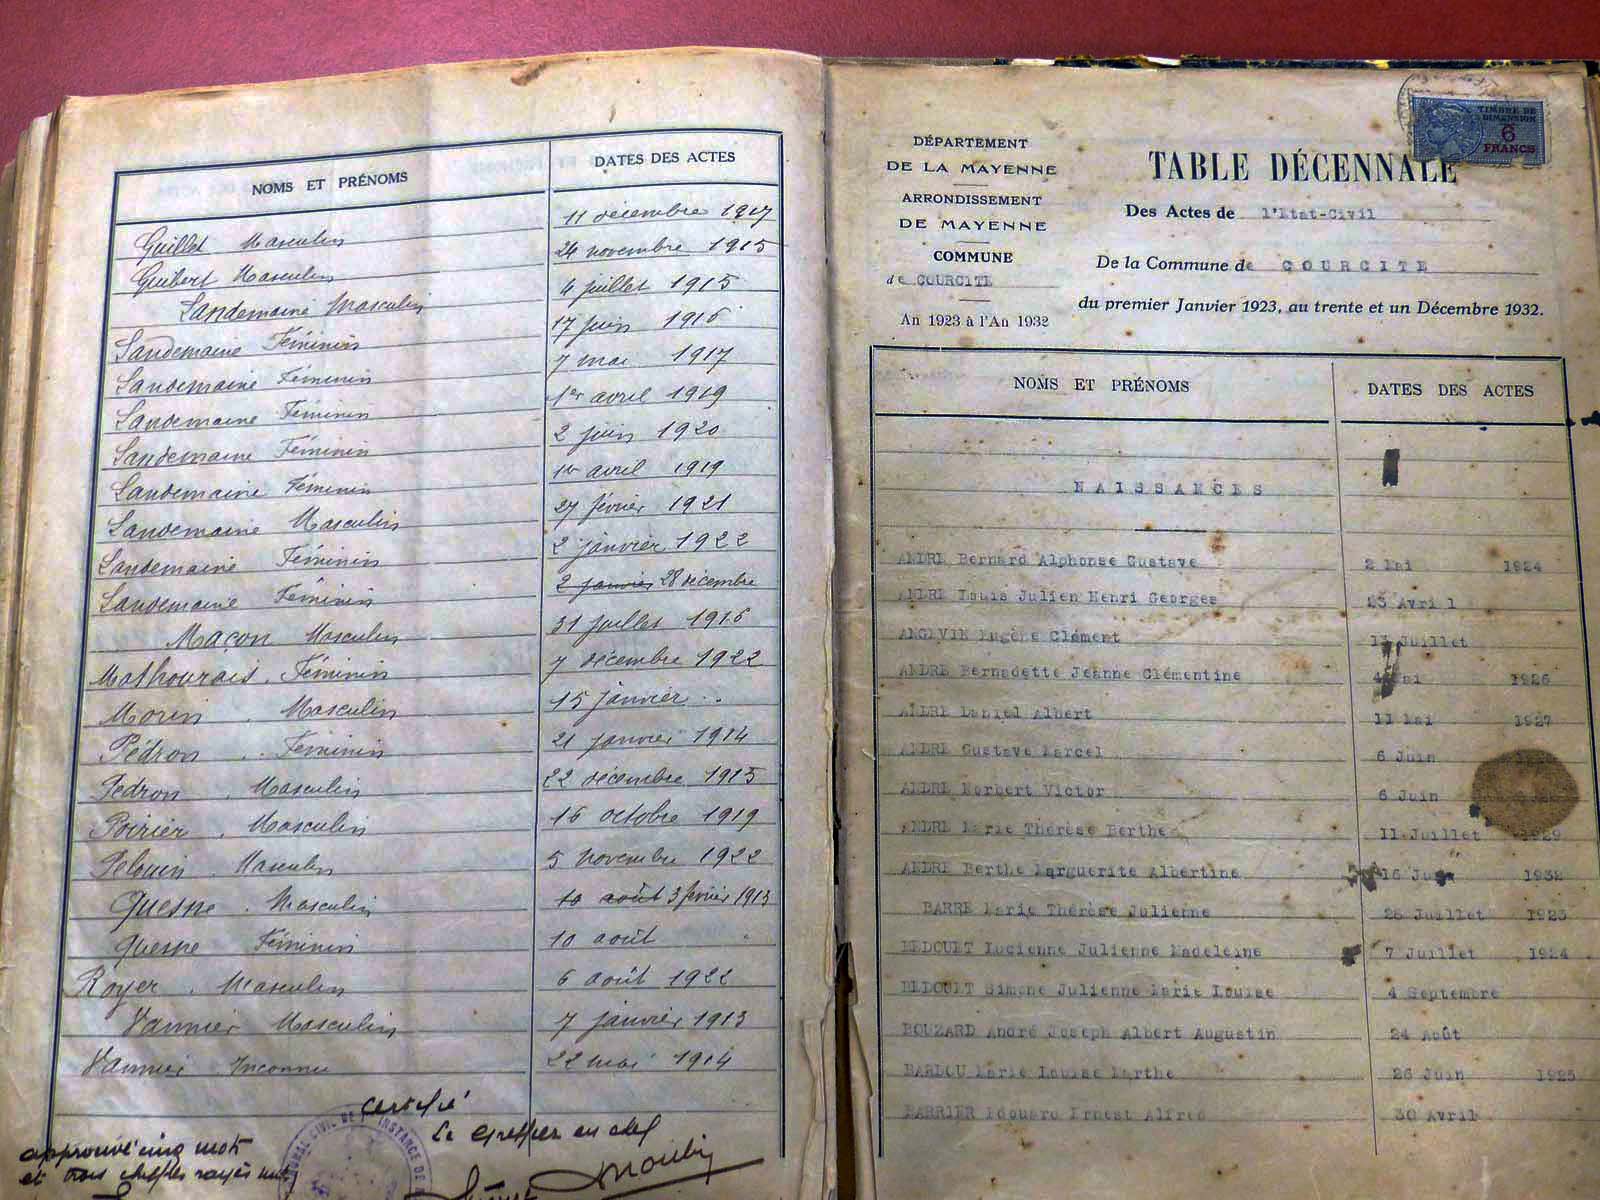 NOMS ET PRÉNOMS DATES DES ACTES
Guillet Masculin 11 décembre 1917
Guibert Masculin 24 novembre 1915
Landemaine Masculin 4 juillet 1915
Landemaine Féminin 17 juin 1916
Landemaine Féminin 7 mai 1917
Landemaine Féminin 1er avril 1919
Landemaine Féminin 2 juin 1920
Landemaine Féminin 1er avril 1919
Landemaine Masculin 27 février 1921
Landemaine Féminin 2 janvier 1922
Landemaine Féminin 2 janvier 28 décembre
Maçon Masculin 31 juillet 1916
Mathourais Féminin 7 décembre 1922
Morin Masculin 15 janvier
Pédron Féminin 21 janvier 1914
Pedron Masculin 22 décembre 1915
Poirier Masculin 16 octobre 1919
Pelouin Masculin 5 novembre 1922
Quesne Masculin 10 août 3 février 1913
Quesne Féminin 10 août
Royer Masculin 6 août 1922
Vannier Masculin 7 janvier 1913
Vannier Inconnu 22 mai 1914
Certifié
Le Greffier en chef
approuvé cinq mots
et trois chiffres rayés nuls
INSTANCE DE
TIMBRE DE
DIMENSION
6
FRANCS
DÉPARTEMENT
DE LA MAYENNE
ARRONDISSEMENT
DE MAYENNE
COMMUNE
de COURCITE
An 1923 à l'An 1932
TABLE DÉCENNALE
Des Actes de l'Etat-Civil
De la Commune de COURCITE
du premier Janvier 1923, au trente et un Décembre 1932.
NOMS ET PRÉNOMS DATES DES ACTES
NAISSANCES
ANDRE Bernard Alphonse Gustave 2 Mai 1924
ANDRE Louis Julien Henri Georges 25 Avril
ANGEVIN Eugène Clément 13 Juillet
ANDRE Bernadette Jeanne Clémentine 4 Mai 1926
ANDRE Daniel Albert 11 Mai 1927
ANDRE Gustave Marcel 6 Juin
ANDRE Norbert Victor 6 Juin
ANDRE Marie Thérèse Berthe 11 Juillet 1929
ANDRE Berthe Marguerite Albertine 16 1932
BARRE Marie Thérèse Julienne 26 Juillet 1923
BEDOUET Lucienne Julienne Madeleine 7 Juillet 1924
BEDOUET Simone Julienne Marie Louise 4 Septembre
BOUZARD André Joseph Albert Augustin 24 Août
BARDOU Marie Louise Marthe 26 Juin 1925
BARRIER Edouard Ernest Alfred 30 Avril